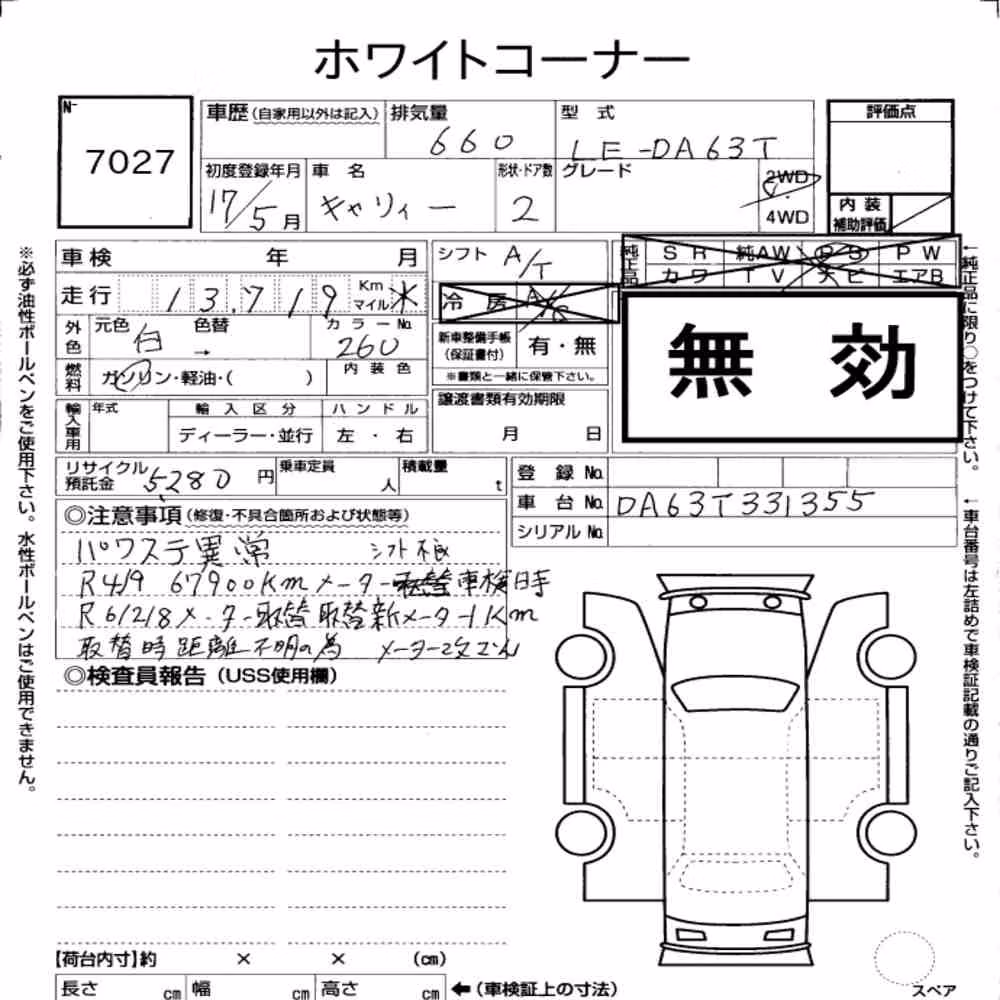 ホワイトコーナー
N- 7027
車歴(自家用以外は記入) 排気量 660 型式 LE-DA63T
評価点
初度登録年月 17/5月 車名 キャリィー 形状・ドア数 2 グレード 2WD 4WD
内装補助評価
車検 年 月
シフト A/T
純正品 SR 純AW PS PW
カワ TV ナビ エアB
走行 13,719 Km マイル 米
冷房 A/C
無効
外色 元色 白 色替 → カラーNo. 260
新車整備手帳(保証書付) 有・無
燃料 ガソリン・軽油・( ) 内装色
※書類と一緒に保管下さい。
輸入車用 年式 輸入区分 ハンドル
ディーラー・並行 左・右
譲渡書類有効期限
月 日
リサイクル預託金 5,280円 乗車定員 人 積載量 t
登録No.
車台No. DA63T331355
シリアルNo.
◎注意事項(修復・不具合箇所および状態等)
パワステ異常 シフト不良
R4/9 67900Km メーター取替車検日手
R6/2/8メーター取替 取替新メーター1Km
取替時距離不明の為 メーター改ざん
◎検査員報告(USS使用欄)
【荷台内寸】約 × × (cm)
長さ cm 幅 cm 高さ cm ←(車検証上の寸法)
スペア
※必ず油性ボールペンをご使用下さい。水性ボールペンはご使用できません。
←純正品に限り○をつけて下さい。
←車台番号は左詰めで車検証記載の通りご記入下さい。